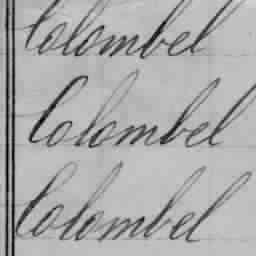 Colombel
Colombel
Colombel